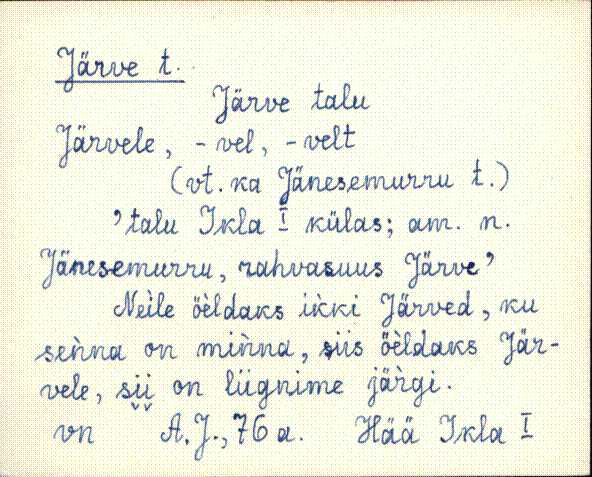 Järve t.
Järve talu
Järvele, -vel, -velt
(vt. ka Jänesemurru t.)
’talu Ikla I külas; am. n.
Jänesemurru, rahvasuus Järve’
Neìle öèldaks iὶkki Järved, ku
seǹna on miǹna, siis öèldaks Jär-
vele, sii on liignime jäŕgi.
vn A.J., 76 a. Hää Ikla I